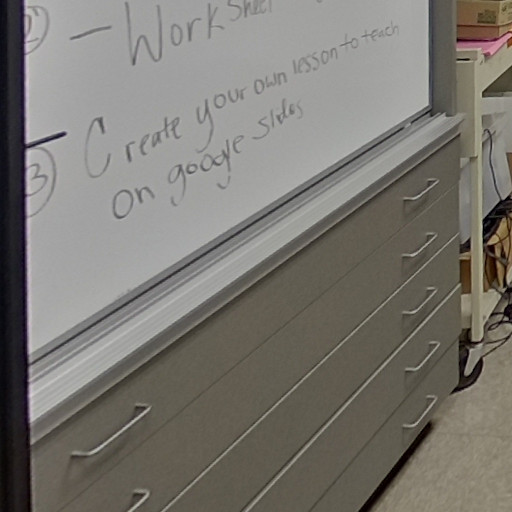 ② - Worksheet
③ Create your own lesson to teach
on google slides